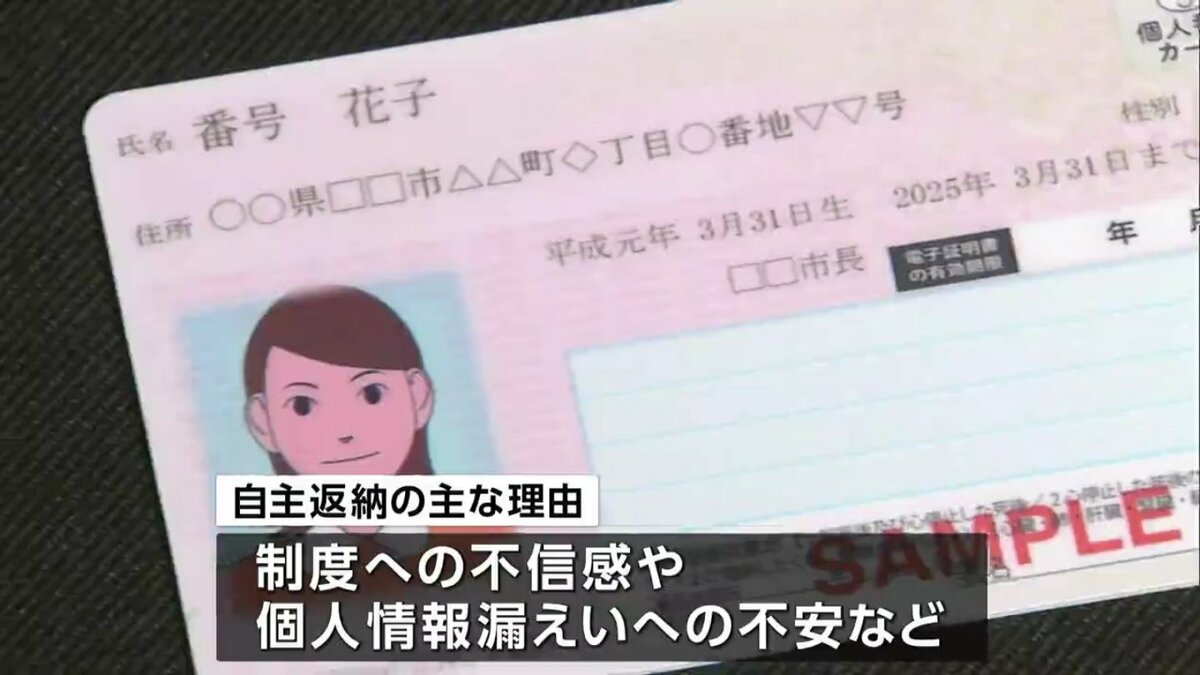 個人
カー
氏名 番号 花子
性別
住所 ○○県□□市△△町◇丁目○番地▽▽号
平成元年 3月31日生 2025年 3月31日まで
□□市長 電子証明書
の有効期限 年 月
SAMPLE
自主返納の主な理由
制度への不信感や
個人情報漏えいへの不安など